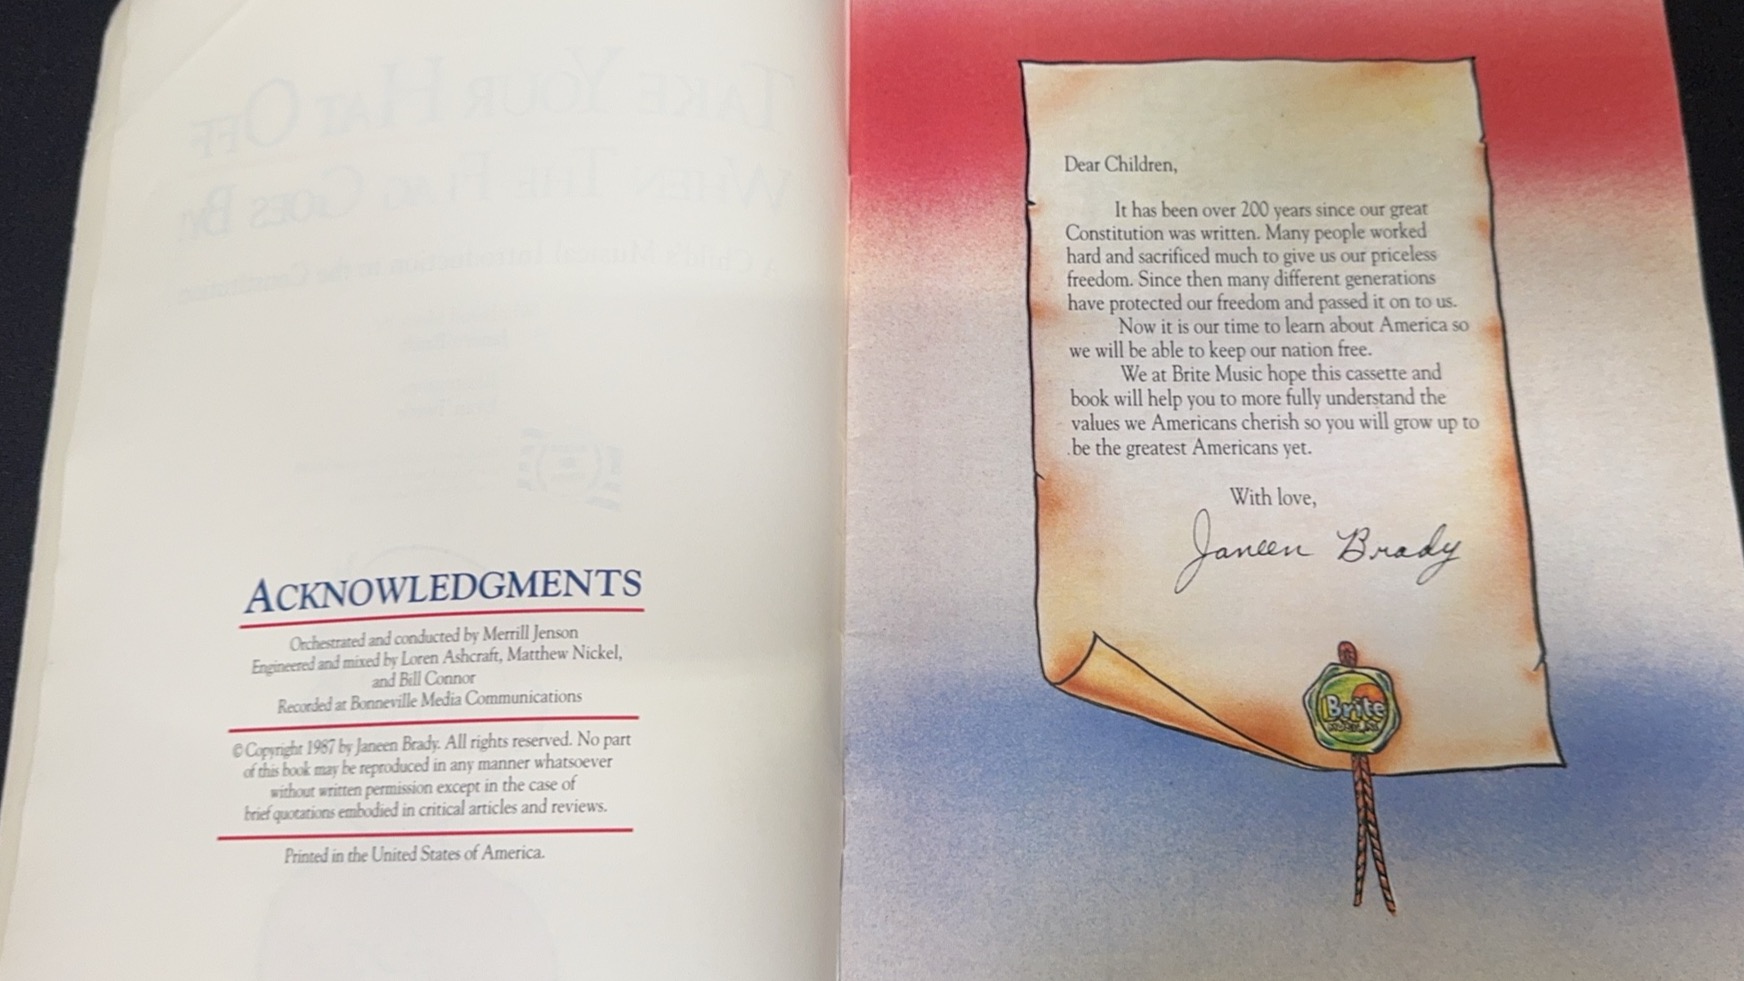 TAKE YOUR HAT OFF
WHEN THE FLAG GOES BY!
A Child's Musical Introduction to the Constitution
ACKNOWLEDGMENTS
Orchestrated and conducted by Merrill Jenson
Engineered and mixed by Loren Ashcraft, Matthew Nickel,
and Bill Connor
Recorded at Bonneville Media Communications
© Copyright 1987 by Janeen Brady. All rights reserved. No part
of this book may be reproduced in any manner whatsoever
without written permission except in the case of
brief quotations embodied in critical articles and reviews.
Printed in the United States of America.
Dear Children,
It has been over 200 years since our great
Constitution was written. Many people worked
hard and sacrificed much to give us our priceless
freedom. Since then many different generations
have protected our freedom and passed it on to us.
Now it is our time to learn about America so
we will be able to keep our nation free.
We at Brite Music hope this cassette and
book will help you to more fully understand the
values we Americans cherish so you will grow up to
be the greatest Americans yet.
With love,
Janeen Brady
Brite